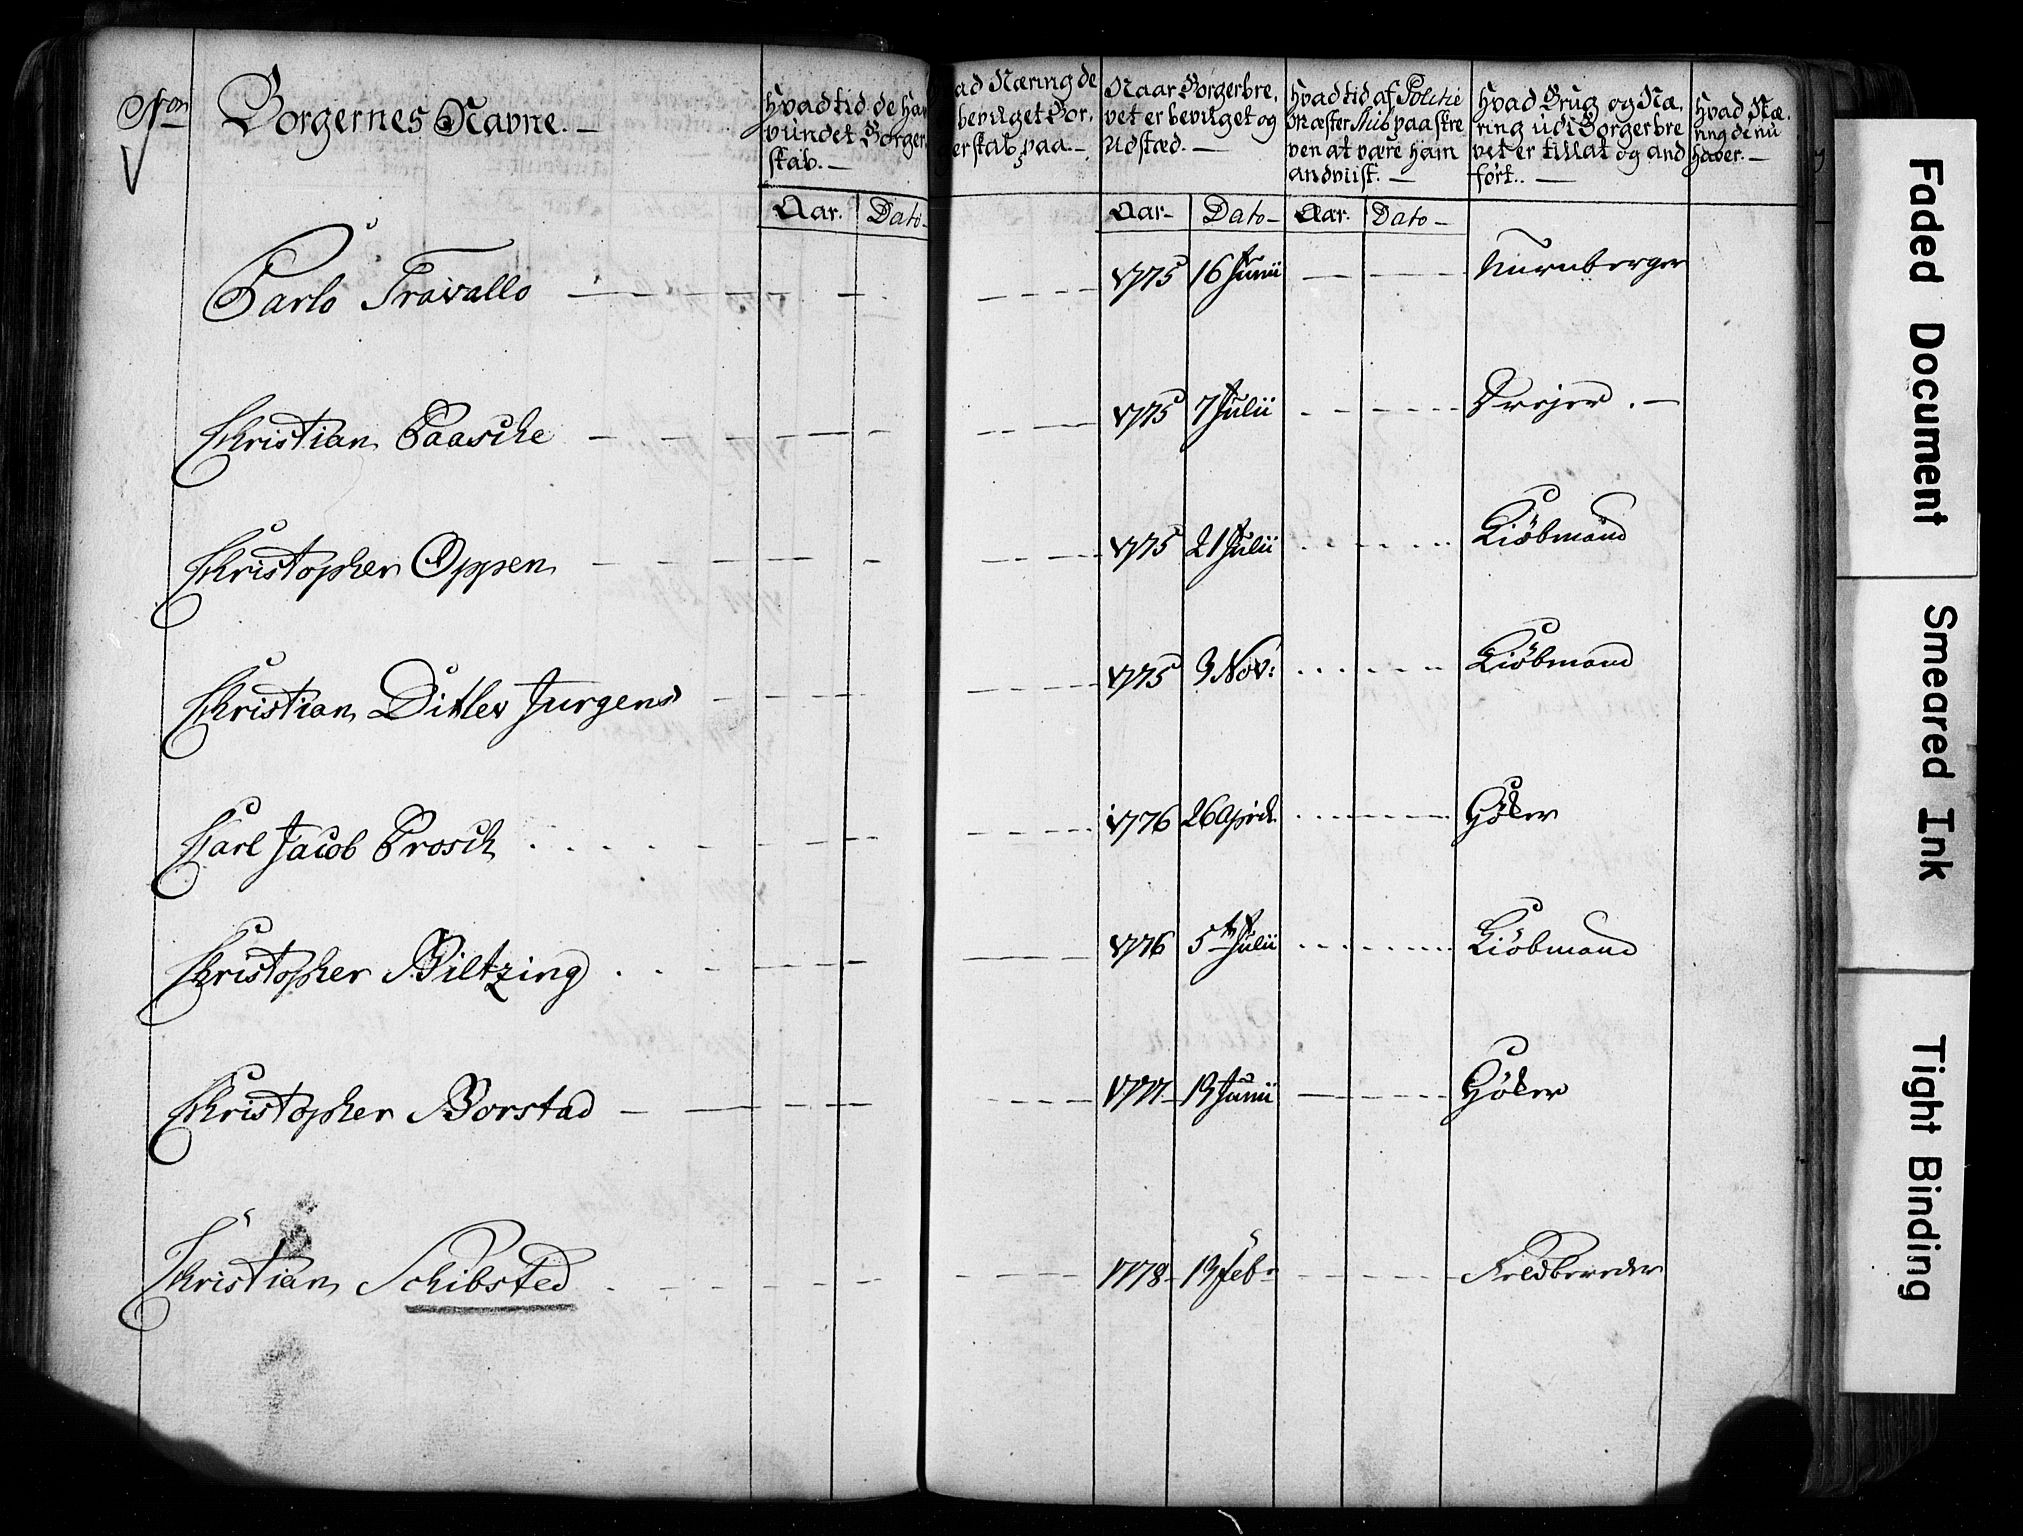 Borgernes Navne. —
Hvad tid de har
vundet Borger
skab. —
Aar. Dato
ad Næring de
bevilget Bor,
gerskab paa. —
Naar Borgerbre,
vet er bevilget og
Udstæd. —
Aar Dato
Hvad tid af Politie
Mæster Skib paaskre
ven at være ham
andviist. —
Aar. Dato
Hvad Brug og Næ,
ring udi Borgerbre
vet er tillat og and
fört. —
Hvad Næ,
ring de nu
haver. —
Carlo Travallo — — — 1775 16 Junii — — Nürnberger
Christian Paasche — — — 1775 7 Julii — — Drejer. —
Christopher Oppen — — — 1775 21 Julii — — Kiöbmand
Christian Ditlev Jurgens — — — 1775 3 Nov: — — Kiöbmand
Carl Jacob Prosch — — — 1776 26 April. — — Höker
Christopher Biltzing — — — 1776 5te Julii — — Kiöbmand
Christopher Borstad — — — 1777 13 Junii — — Höker
Christian Schibsted — — — 1778 13 Feb. — — Feldbereder
Faded Document
Smeared Ink
Tight Binding